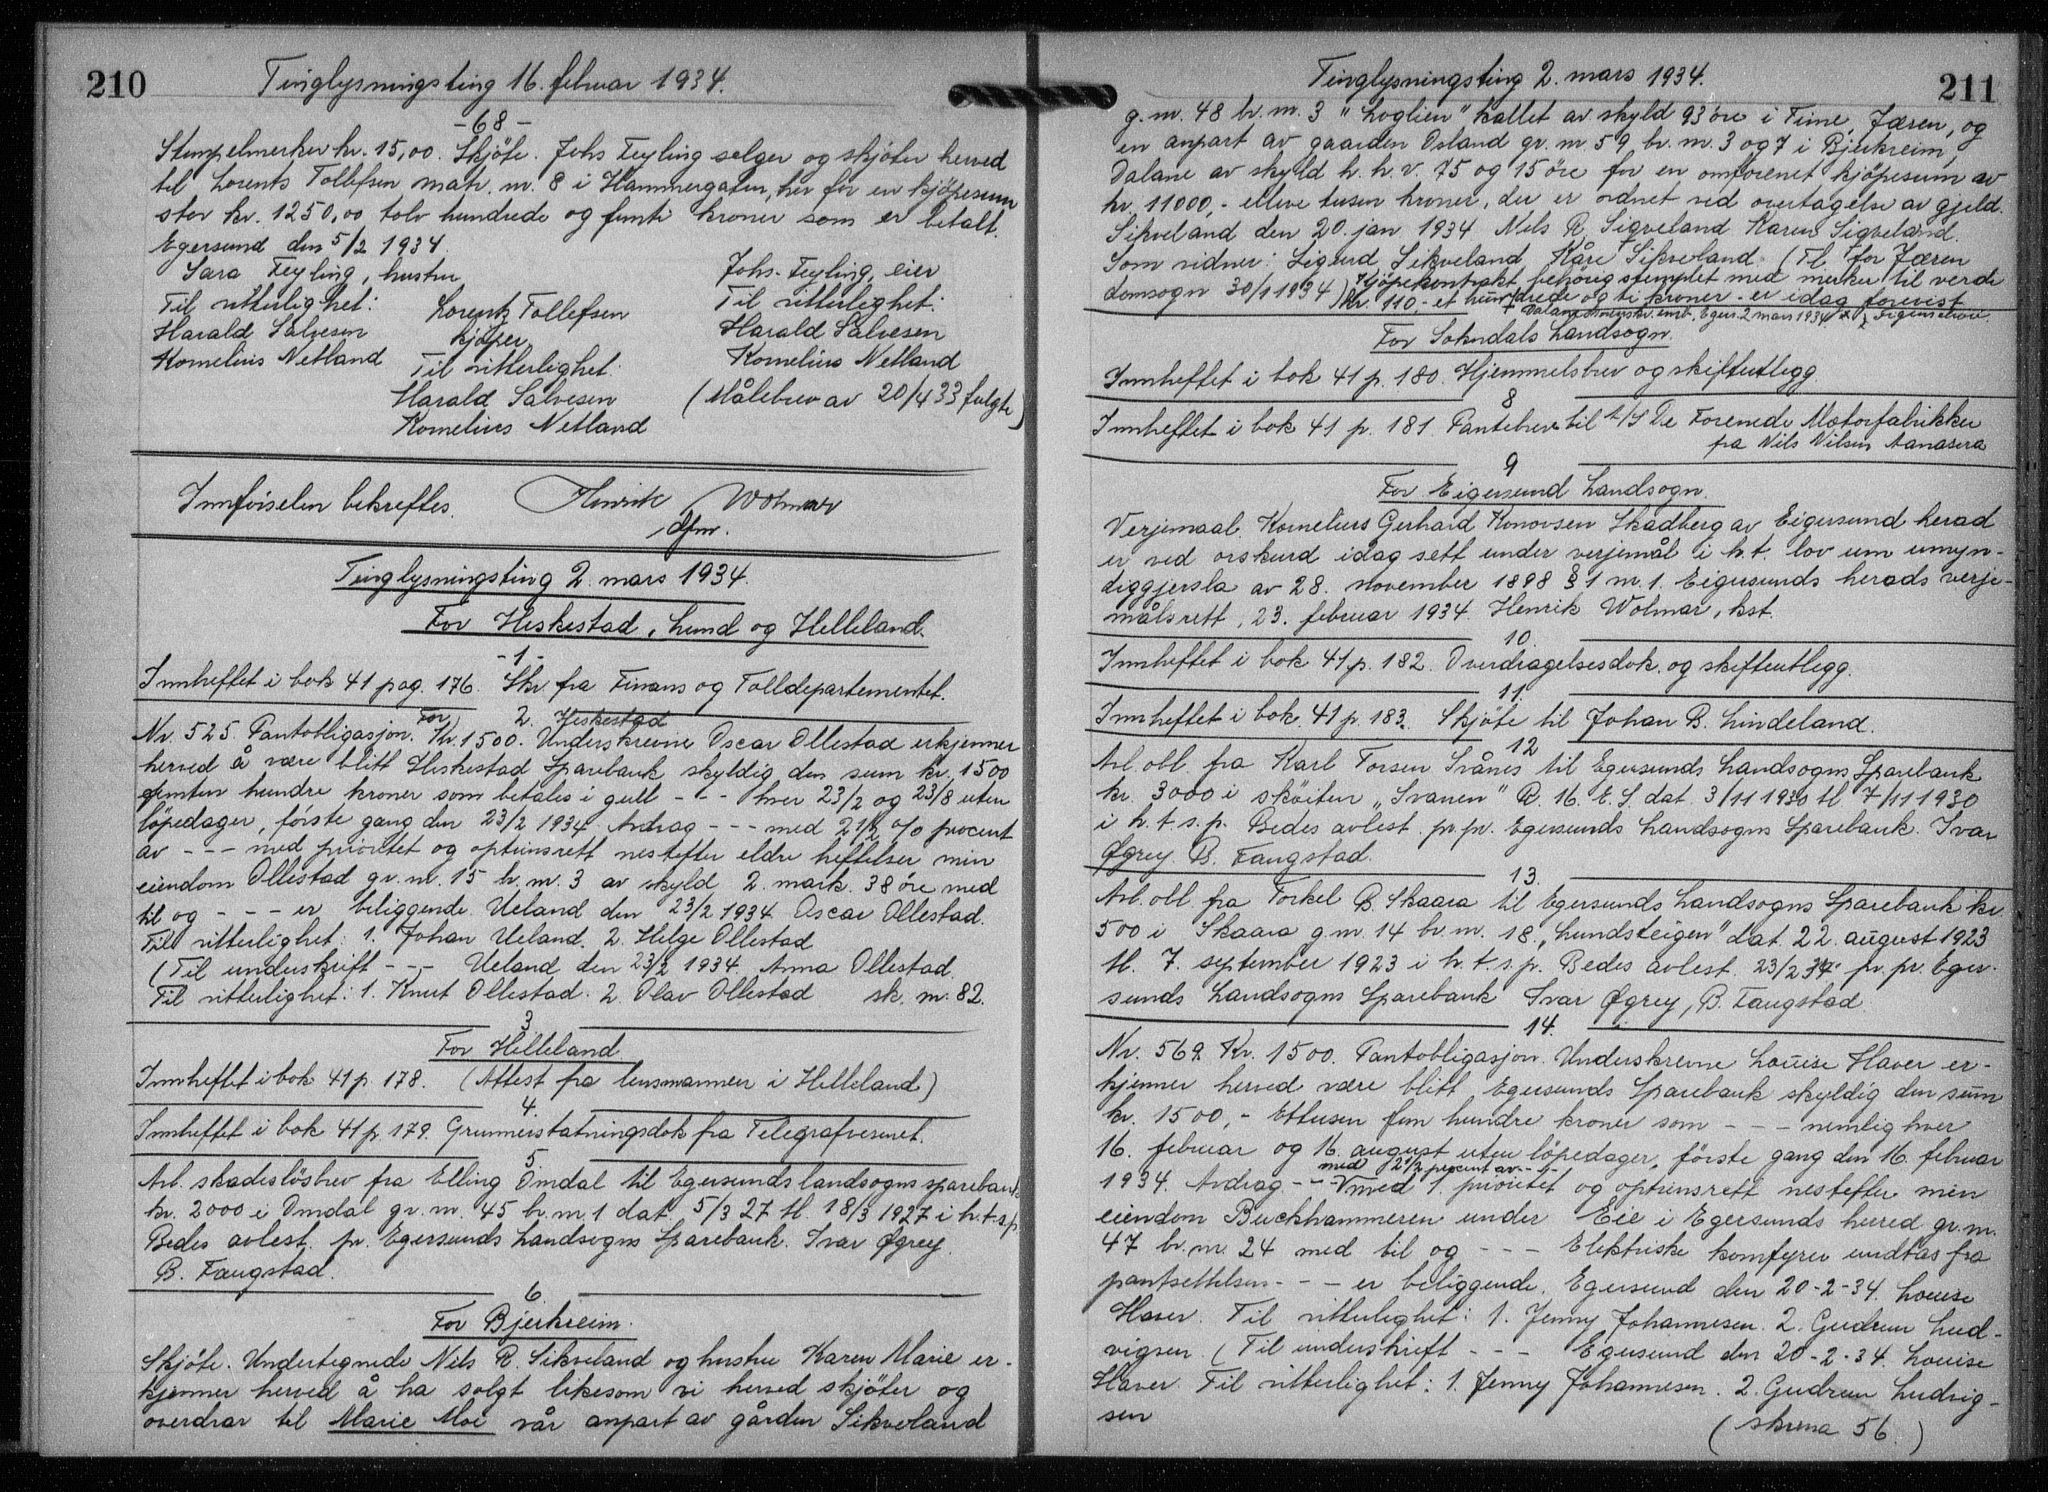 210
Tinglysningsting 16. februar 1934.
-68-
Stempelmerker kr. 15,00. Skjöte. Johs Feyling selger og skjöter herved
til Lorents Tollefsen matr. nr. 8 i Hammergaten, her for en kjöpesum
stor kr. 1250,00 tolv hundrede og femti kroner som er betalt.
Egersund den 5/2 1934
Sara Feyling, hustru
Johs. Feyling, eier
Til vitterlighet:
Lorentz Tollefsen
Til vitterlighet:
Harald Salvesen
kjöper
Harald Salvesen
Kornelius Netland
Til vitterlighet:
Kornelius Netland
Harald Salvesen
(Målebrev av 20/4 33 fulgte)
Kornelius Netland
Innförselen bekreftes. Henrik Wolmar
dfm.
Tinglysningsting 2. mars 1934.
For Heskestad, Lund og Helleland.
-1-
Innheftet i bok 41 pag. 176. Skr. fra Finans og Tolldepartementet.
2. For Heskestad
Nr. 525 Pantobligasjon. Kr. 1500. Underskrevne Oscar Ollestad erkjenner
herved å være blitt Heskestad Sparebank skyldig den sum kr. 1500
femten hundre kroner som betales i gull - - - hver 23/2 og 23/8 uten
löpedager, förste gang den 23/2 1934 Avdrag - - - med 2 1/2 % procent
av - - - med prioritet og optrinsrett nestefter eldre heftelser min
eiendom Ollestad gr. nr. 15 br. nr. 3 av skyld 2. mark. 38 öre med
til og - - - er beliggende. Ueland den 23/2 1934 Oscar Ollestad.
Til vitterlighet: 1. Johan Ueland. 2. Helge Ollestad
(Til underskrift - - - Ueland den 23/2 1934. Anna Ollestad.
Til vitterlighet: 1. Knut Ollestad. 2 Olav Ollestad sk. nr. 82.
3.
For Helleland
Innheftet i bok 41 p. 178. (Attest fra lensmannen i Helleland)
4.
Innheftet i bok 41 p. 179. Grunnerstatningsdok fra Telegrafverket.
5.
Avl. skadeslösbrev fra Elling Omdal til Egersunds landsogns sparebank
kr. 2000 i Omdal gr. nr. 45 br. nr. 1 dat 5/3 27 tl. 18/3 1927 i h.t.s.p.
Bedes avlest. pr. Egersunds Landsogns Sparebank. Ivar Øgrey.
B. Faugstad.
6
For Bjerkreim.
Skjöte. Undertegnede Nils R. Sikveland og hustru Karen Marie er-
kjenner herved å ha solgt likesom vi herved skjöter og
overdrar til Marie Moi vår anpart av gården Sikveland
Tinglysningsting 2. mars 1934.
211
g. nr. 48 br. nr. 3 "Loglien" kallet av skyld 93 öre i Time, Jæren, og
en anpart av gaarden Osland gr. nr. 59, br. nr. 3 og 7 i Bjerkreim,
Dalane av skyld h. h. v. 75 og 15 öre for en omforenet kjöpesum av
kr. 11000,- elleve tusen kroner, der er ordnet ved overtagelse av gjeld.
Sikveland den 20. jan 1934 Nels R. Sigveland Karen Sigveland.
Som vidner: Sigurd Sikveland Kåre Sikveland. (Tl for Jæren
domsogn 30/1 1934) Kjöpekontrakt behörig stemplet med merker til verdi
kr. 110,- et hundrede og ti kroner - er idag forevist
Dalane sorenskr. emb. Egers. 2 mars 1934
For Sokndals Landsogn.
Innheftet i bok 41 p. 180. Hjemmelsbrev og skifteutlegg.
8
Innheftet i bok 41 p. 181. Pantebrev til A/S De Forenede Motorfabrikker
fra Nils Nilsen Aanasera
9
For Eigersund Landsogn.
Verjemaal. Kornelius Gerhard Konovsen Skadberg av Eigersund herad
er ved orskurd idag sett under verjemål i h.t. lov um umyn-
diggjersla av 28. november 1898 § 1 nr. 1. Eigersunds herads verje-
målsrett, 23. februar 1934. Henrik Wolmar, kst.
10.
Innheftet i bok 41 p. 182. Overdragelsesdok. og skifteutlegg.
11.
Innheftet i bok 41 p. 183. Skjöte til Johan B. Lindeland.
12
Avl. obl. fra Karl Torsen Svånes til Egersunds Landsogns Sparebank
kr. 3000 i sköiten "Svanen" R. 16. E. S. dat. 3/11 1930 tl 7/11 1930
i h.t.s.p. Bedes avlest. pr. pr. Egersunds Landsogns Sparebank. Ivar
Øgrey B. Faugstad.
13.
Avl. obl. fra Torkel B. Skaara til Egersunds Landsogns Sparebank kr.
500 i Skaara g. nr. 14 br. nr. 18. "Lundsteigen" dat. 22. august 1923
tl. 7. september 1923 i h.t.s.p. Bedes avlest. 23/2 34. pr. pr. Eger-
sunds Landsogns Sparebank Ivar Øgrey, B. Faugstad.
14.
Nr. 569 Kr. 1500. Pantobligasjon. Underskrevne Louise Haver er-
kjenner herved være blitt Egersunds Sparebank skyldig den sum
kr. 1500,- Ettusen fem hundre kroner som - - - nemlig hver
16. februar og 16. august uten löpedager, förste gang den 16. februar
1934. Avdrag - - - med 2 1/2 procent av - - - med 1. prioritet og optrinsrett nestefter min
eiendom Buckhammeren under Eie i Egersunds herred gr. nr.
47 br. nr. 24 med til og - - - Elektriske komfyrer undtas fra
pantsettelsen - - - er beliggende. Egersund den 20-2-34. Louise
Haver. Til vitterlighet: 1. Jenny Johannesen. 2. Gudrun Lud-
vigsen. (Til underskrift - - - Egersund den 20-2-34. Louise
Haver Til vitterlighet: 1. Jenny Johannesen. 2. Gudrun Ludvig-
sen
(skrena 56.)